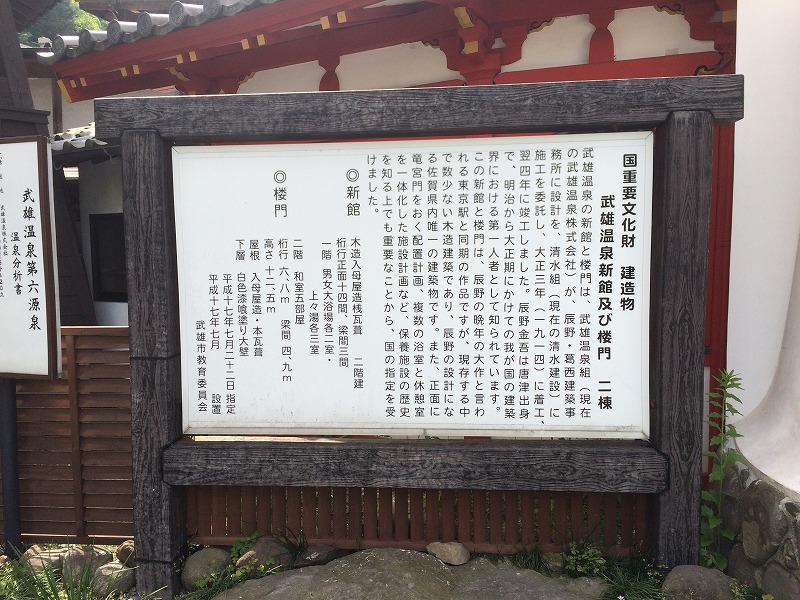 国重要文化財　建造物
武雄温泉新館及び楼門　二棟
武雄温泉の新館と楼門は、武雄温泉組（現在
の武雄温泉株式会社）が、辰野・葛西建築事
務所に設計を、清水組（現在の清水建設）に
施工を委託し、大正三年（一九一四）に着工、
翌四年に竣工しました。辰野金吾は唐津出身
で、明治から大正期にかけての我が国の建築
界における第一人者として知られています。
この新館と楼門は、辰野の晩年の大作と言わ
れる東京駅と同期の作品ですが、現存する中
で数少ない木造建築であり、辰野の設計にな
る佐賀県内唯一の建築物です。また、正面に
竜宮門をおく配置計画、複数の浴室と休憩室
を一体化した施設計画など、保養施設の歴史
を知る上でも重要なことから、国の指定を受
けました。
◎新館　木造入母屋造桟瓦葺　二階建
桁行正面十四間、梁間三間
一階　男女大浴場各二室・
上々湯各三室
二階　和室五部屋
◎楼門　桁行　六、八ｍ　梁間　四、九ｍ
高さ　十二、五ｍ
屋根　入母屋造・本瓦葺
下層　白色漆喰塗り大壁
平成十七年七月二十二日　指定
平成十七年七月　設置
武雄市教育委員会
武雄温泉第六源泉
温泉分析書